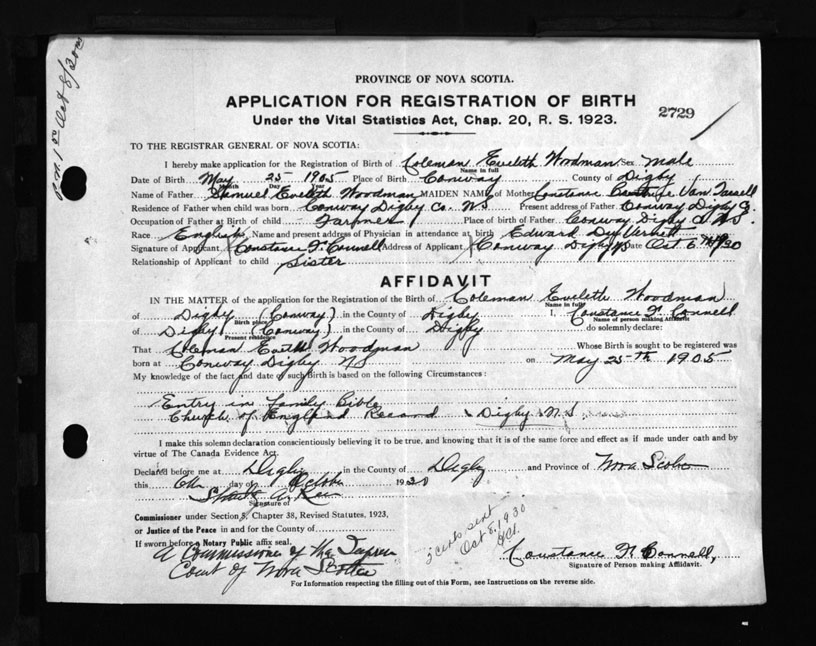 PROVINCE OF NOVA SCOTIA.
APPLICATION FOR REGISTRATION OF BIRTH
2729
Under the Vital Statistics Act, Chap. 20, R. S. 1923.
TO THE REGISTRAR GENERAL OF NOVA SCOTIA:
I hereby make application for the Registration of Birth of Coleman Eveleth Woodman Sex Male
Name in full
Date of Birth May 25 1905 Place of Birth Conway County of Digby
Month Day Year
Name of Father Samuel Eveleth Woodman MAIDEN NAME of Mother Constance Van Tassell
Residence of Father when child was born Conway Digby Co. NS Present address of Father Conway Digby Co.
Occupation of Father at Birth of child Farmer Place of birth of Father Conway Digby Co NS.
Race English Name and present address of Physician in attendance at birth Edward Du Vernet
Signature of Applicant Constance F. Connell Address of Applicant Conway Digby NS Date Oct 6th 1930
Relationship of Applicant to child Sister
AFFIDAVIT
IN THE MATTER of the application for the Registration of the Birth of Coleman Eveleth Woodman
Name in full
of Digby (Conway) in the County of Digby I, Constance F. Connell
Birth place
Name of person making Affidavit
of Digby (Conway) in the County of Digby do solemnly declare:
Present residence
That Coleman Woodman Whose Birth is sought to be registered was
born at Conway Digby NS on May 25th 1905
My knowledge of the fact and date of such Birth is based on the following Circumstances:
Entry in family Bible
Church of England Record Digby N.S.
I make this solemn declaration conscientiously believing it to be true, and knowing that it is of the same force and effect as if made under oath and by
virtue of The Canada Evidence Act.
Declared before me at Digby in the County of Digby and Province of Nova Scotia
this 6th day of October 1930
Signature of
Commissioner under Section 3, Chapter 38, Revised Statutes, 1923,
or Justice of the Peace in and for the County of
If sworn before a Notary Public affix seal.
A Commissioner of the Supreme
Court of Nova Scotia
2 certs sent
Oct 8, 1930
Constance F. Connell,
Signature of Person making Affidavit.
For Information respecting the filling out of this Form, see Instructions on the reverse side.